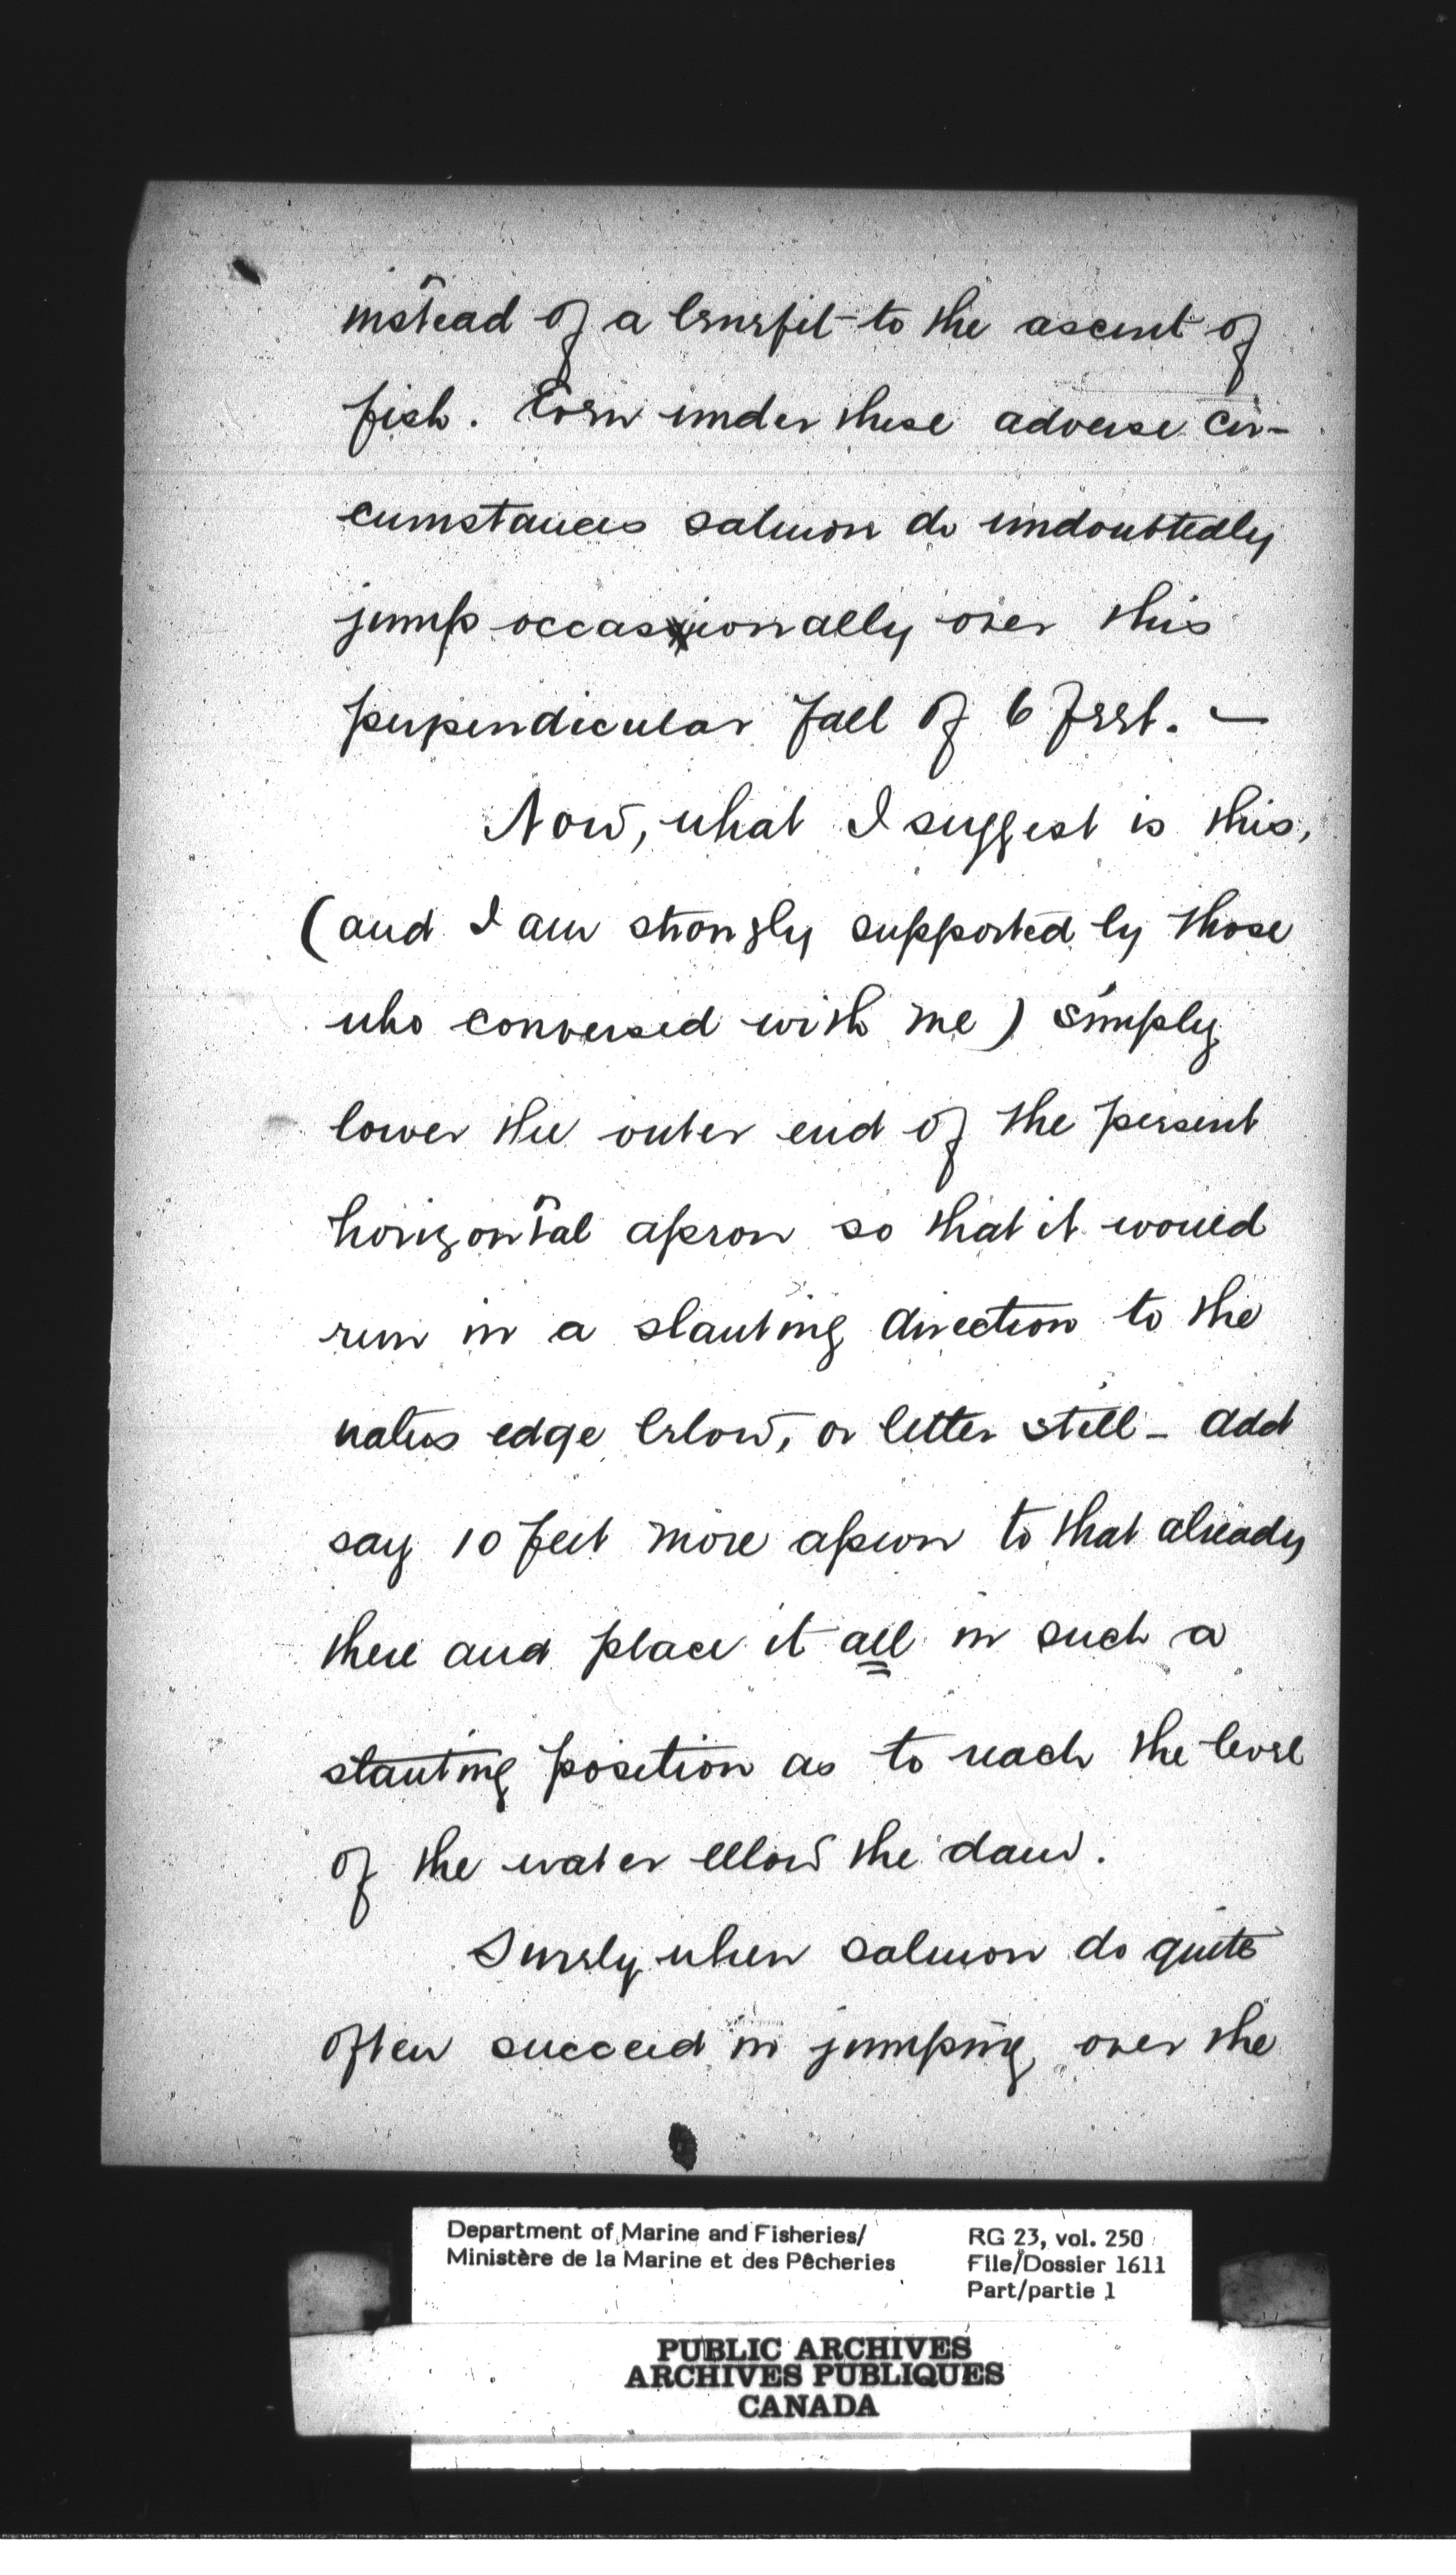 instead of a benefit to the ascent of
fish. Even under these adverse cir-
cumstances salmon do undoubtedly
jump occasionally over this
perpendicular fall of 6 feet. —
Now, what I suggest is this,
(and I am strongly supported by those
who conversed with me) simply
lower the outer end of the present
horizontal apron so that it would
run in a slanting direction to the
waters edge below, or better still - add
say 10 feet more apron to that already
there and place it all in such a
slanting position as to reach the level
of the water below the dam.
Surely, when salmon do quite
often succeed in jumping over the
Department of Marine and Fisheries/
Ministère de la Marine et des Pêcheries
RG 23, vol. 250
File/Dossier 1611
Part/partie 1
PUBLIC ARCHIVES
ARCHIVES PUBLIQUES
CANADA